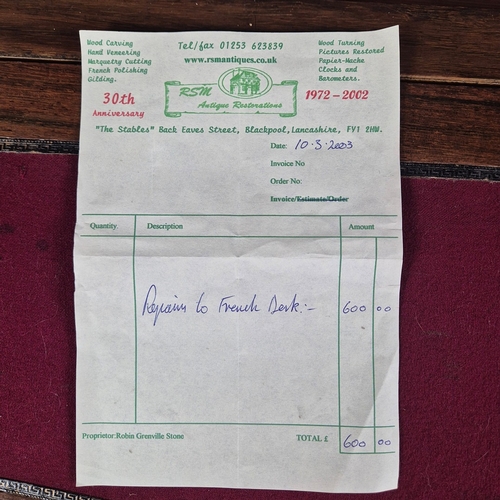 Wood Carving
Hand Veneering
Marquetry Cutting
French Polishing
Gilding.
Tel/fax 01253 623839
www.rsmantiques.co.uk
Wood Turning
Pictures Restored
Papier-Mache
Clocks and
Barometers.
30th
Anniversary
RSM
Antique Restorations
1972-2002
"The Stables" Back Eaves Street, Blackpool, Lancashire, FY1 2HW.
Date: 10·3·2003
Invoice No
Order No:
Invoice/Estimate/Order
Quantity Description Amount
Repairs to French Desk:- 600 00
Proprietor:Robin Grenville Stone TOTAL £ 600 00